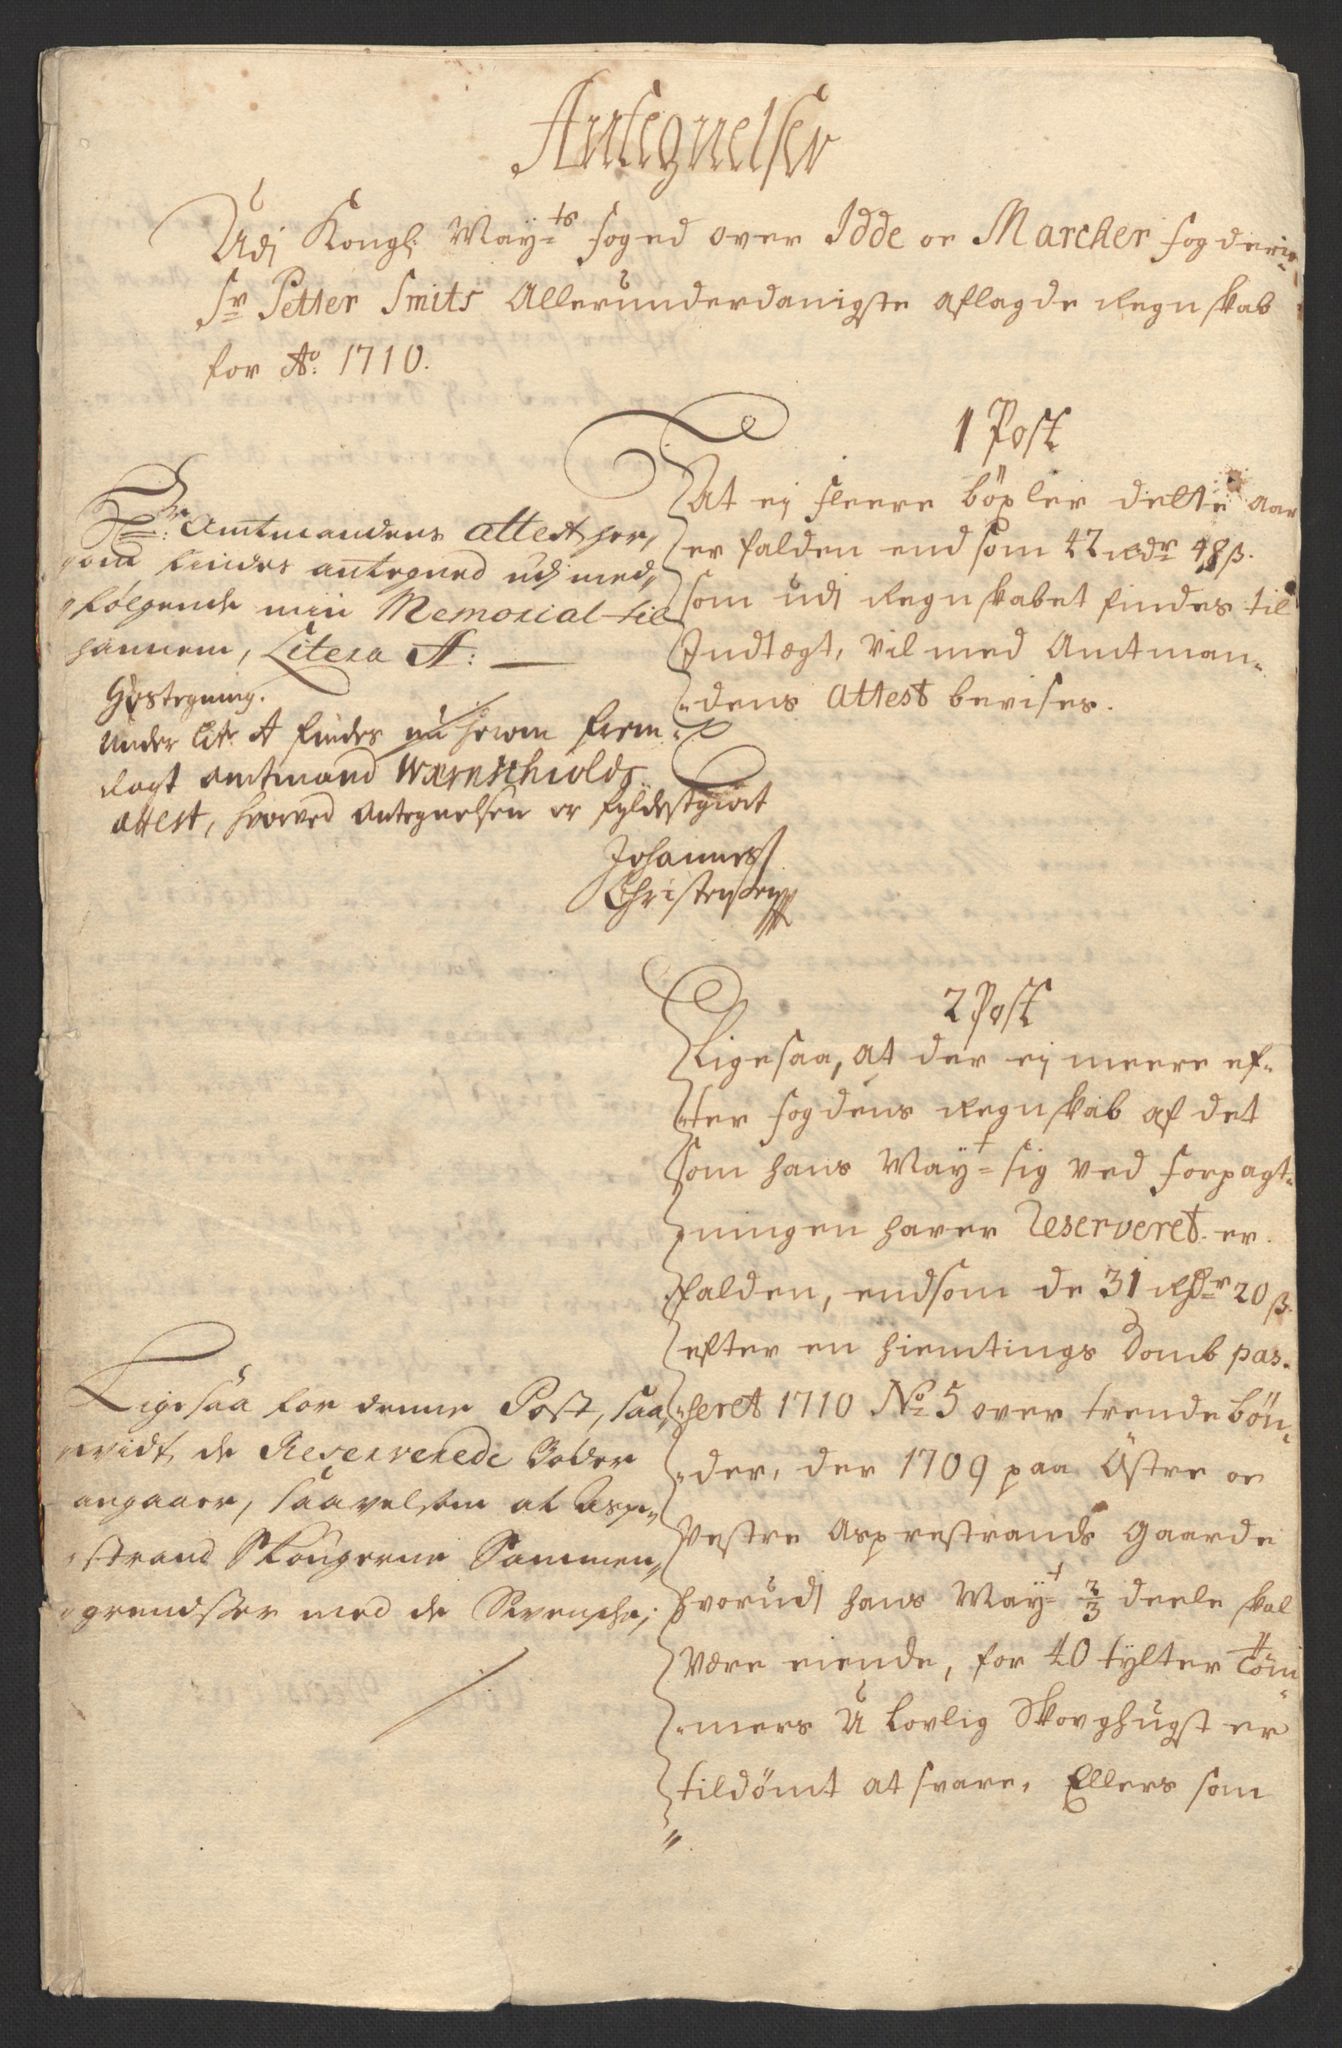 Antegnelser
Udj Kongl: May=ts foged over Idde oc Marcker fogderie
Sr Petter Smits Allerunderdanigste aflagde Regnskab
for Ao: 1710.
1 Post
At ej fleere bøxler dette Aar
er falden end som 42 rdr 48 ß.
som udj Regnskabet findes til
Indtægt, vil med Amtman„
„dens Attest bevises.
Hr: Amtmandens attest her„
om findes antegned udj med„
„følgende min Memorial til
hannem, Litera A:
Gienstegning.
Under Litr A findes nu herom frem„
lagt Amtmand Wærnschiolds
attest, hvorved Antegnelsen er fyldestgiort
Johannes
Christensen
2 Post
Ligesaa, at der ej meere ef„
„ter fogdens Regnskab af det
som hans May=t sig ved forpagt„
„ningen haver Reserveret er
falden, endsom de 31 Rdr 20 ß
efter en hiemtings Domb pas„
„seret 1710 No 5 over trende bøn„
„der, der 1709 paa Østre oc
Vestre Asprestrands Gaarde
hvorudj hans May=t 2/3 deele skal
være eiende, for 40 tylter Tøm
„mers U lovlig Skovghugst er
tildømt at svare, Ellers som
Ligesaa for denne Post, saa
vidt de Reserverede
angaaer, saavelsom at Aspe„
„strand Skougerne Sammen„
„grendsser med de Svenske;